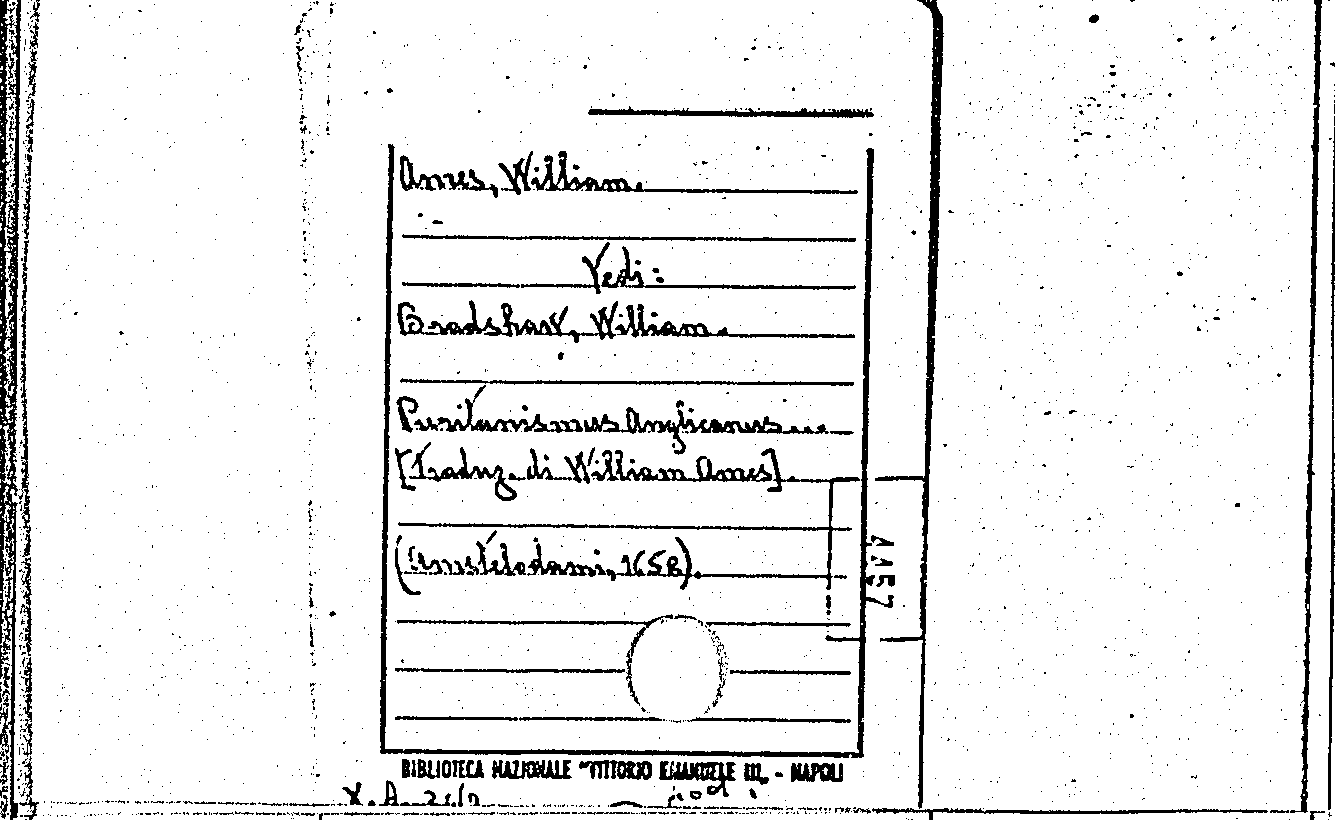 Ames, William.
Vedi:
Bradshaw, William.
Puritanismus Anglicanus...
[Traduz. di William Ames].
(Amstelodami, 1658).
BIBLIOTECA NAZIONALE "VITTORIO EMANUELE III„ - NAPOLI